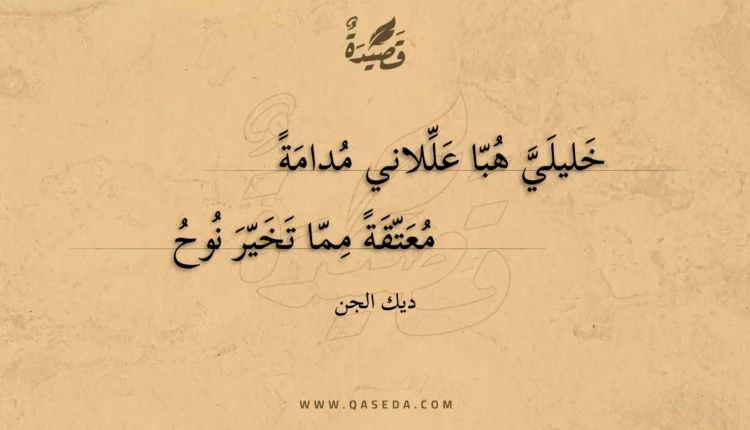 قَصِيْدَةٌ
خَليلَيَّ هُبّا عَلِّلاني مُدامَةً
مُعَتَّقَةً مِمّا تَخَيَّرَ نُوحُ
ديك الجن
WWW.QASEDA.COM